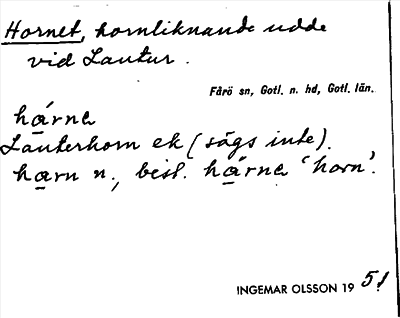 Hornet, hornliknande udde
vid Lautur.
Fårö sn, Gotl. n. hd, Gotl. län.
hárne
Lauterhorn ek (sägs inte).
harn n., best. hárne 'horn'.
INGEMAR OLSSON 1951